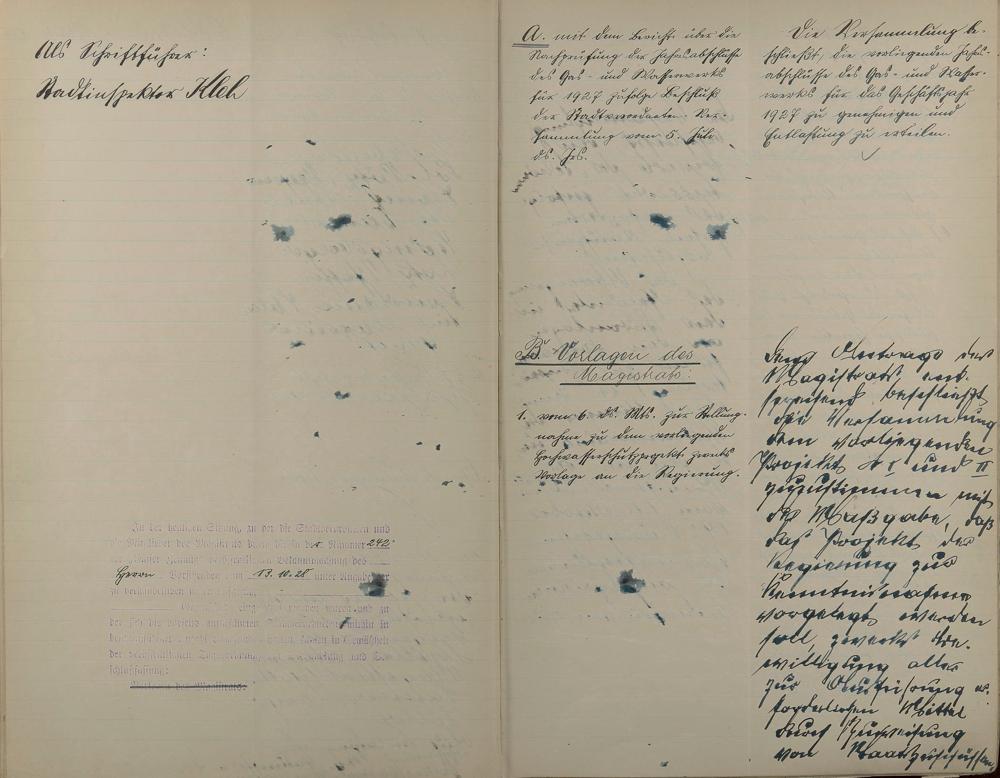 Als Schriftführer:
Stadtinspektor Kleh
In der heutigen Sitzung, zu der die Stadtverordneten und
die Mitglieder des Magistrats durch die in der Nummer 242
Bekanntmachung des
Herrn Vorstehers vom 13.10.28 unter Angabe der
zu
war und zu
der Zeit die
der Tagesordnung, und Be-
schlußfassung:
Vorlagen des Magistrats:
A. mit dem Bericht über die
Nachprüfung der Jahresabschlüsse
des Gas- und Wasserwerks
für 1927 zufolge Beschluß
der Stadtverordneten-Ver-
sammlung vom 5. Juli
ds. Jrs.
Die Versammlung be-
schließt, die vorliegenden Jahres-
abschlüsse des Gas- und Wasser-
werks für das Geschäftsjahr
1927 zu genehmigen und
Entlastung zu erteilen.
B. Vorlagen des
Magistrats:
1. vom 6. ds. Mts. zur Stellung-
nahme zu dem vorliegenden
Hochwasserschutzprojekt zwecks
Vorlage an die Regierung.
Dem Antrage des
Magistrats ent-
sprechend beschließt
die Versammlung
dem vorliegenden
Projekt I und II
zuzustimmen mit
der Maßgabe, daß
das Projekt der
Regierung zur
Kenntnisnahme
vorgelegt werden
soll, zwecks Be-
willigung aller
zur Ausführung er-
forderlichen Mittel
durch Zuweisung
von Staatszuschüssen,